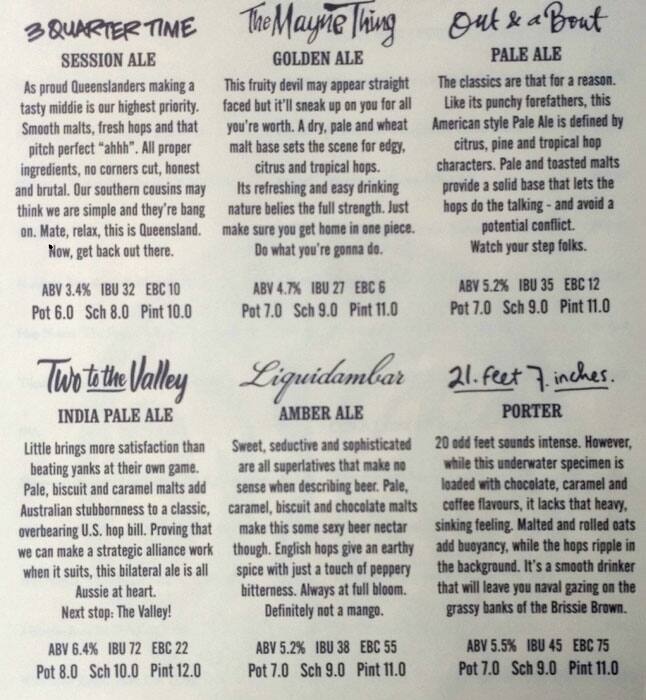 3 QUARTER TIME
SESSION ALE
As proud Queenslanders making a
tasty middie is our highest priority.
Smooth malts, fresh hops and that
pitch perfect "ahhh". All proper
ingredients, no corners cut, honest
and brutal. Our southern cousins may
think we are simple and they're bang
on. Mate, relax, this is Queensland.
Now, get back out there.
ABV 3.4% IBU 32 EBC 10
Pot 6.0 Sch 8.0 Pint 10.0
The Mayne Thing
GOLDEN ALE
This fruity devil may appear straight
faced but it'll sneak up on you for all
you're worth. A dry, pale and wheat
malt base sets the scene for edgy,
citrus and tropical hops.
Its refreshing and easy drinking
nature belies the full strength. Just
make sure you get home in one piece.
Do what you're gonna do.
ABV 4.7% IBU 27 EBC 6
Pot 7.0 Sch 9.0 Pint 11.0
Out & a Bout
PALE ALE
The classics are that for a reason.
Like its punchy forefathers, this
American style Pale Ale is defined by
citrus, pine and tropical hop
characters. Pale and toasted malts
provide a solid base that lets the
hops do the talking - and avoid a
potential conflict.
Watch your step folks.
ABV 5.2% IBU 35 EBC 12
Pot 7.0 Sch 9.0 Pint 11.0
Two to the Valley
INDIA PALE ALE
Little brings more satisfaction than
beating yanks at their own game.
Pale, biscuit and caramel malts add
Australian stubbornness to a classic,
overbearing U.S. hop bill. Proving that
we can make a strategic alliance work
when it suits, this bilateral ale is all
Aussie at heart.
Next stop: The Valley!
ABV 6.4% IBU 72 EBC 22
Pot 8.0 Sch 10.0 Pint 12.0
Liquidambar
AMBER ALE
Sweet, seductive and sophisticated
are all superlatives that make no
sense when describing beer. Pale,
caramel, biscuit and chocolate malts
make this some sexy beer nectar
though. English hops give an earthy
spice with just a touch of peppery
bitterness. Always at full bloom.
Definitely not a mango.
ABV 5.2% IBU 38 EBC 55
Pot 7.0 Sch 9.0 Pint 11.0
21. feet 7. inches.
PORTER
20 odd feet sounds intense. However,
while this underwater specimen is
loaded with chocolate, caramel and
coffee flavours, it lacks that heavy,
sinking feeling. Malted and rolled oats
add buoyancy, while the hops ripple in
the background. It's a smooth drinker
that will leave you naval gazing on the
grassy banks of the Brissie Brown.
ABV 5.5% IBU 45 EBC 75
Pot 7.0 Sch 9.0 Pint 11.0